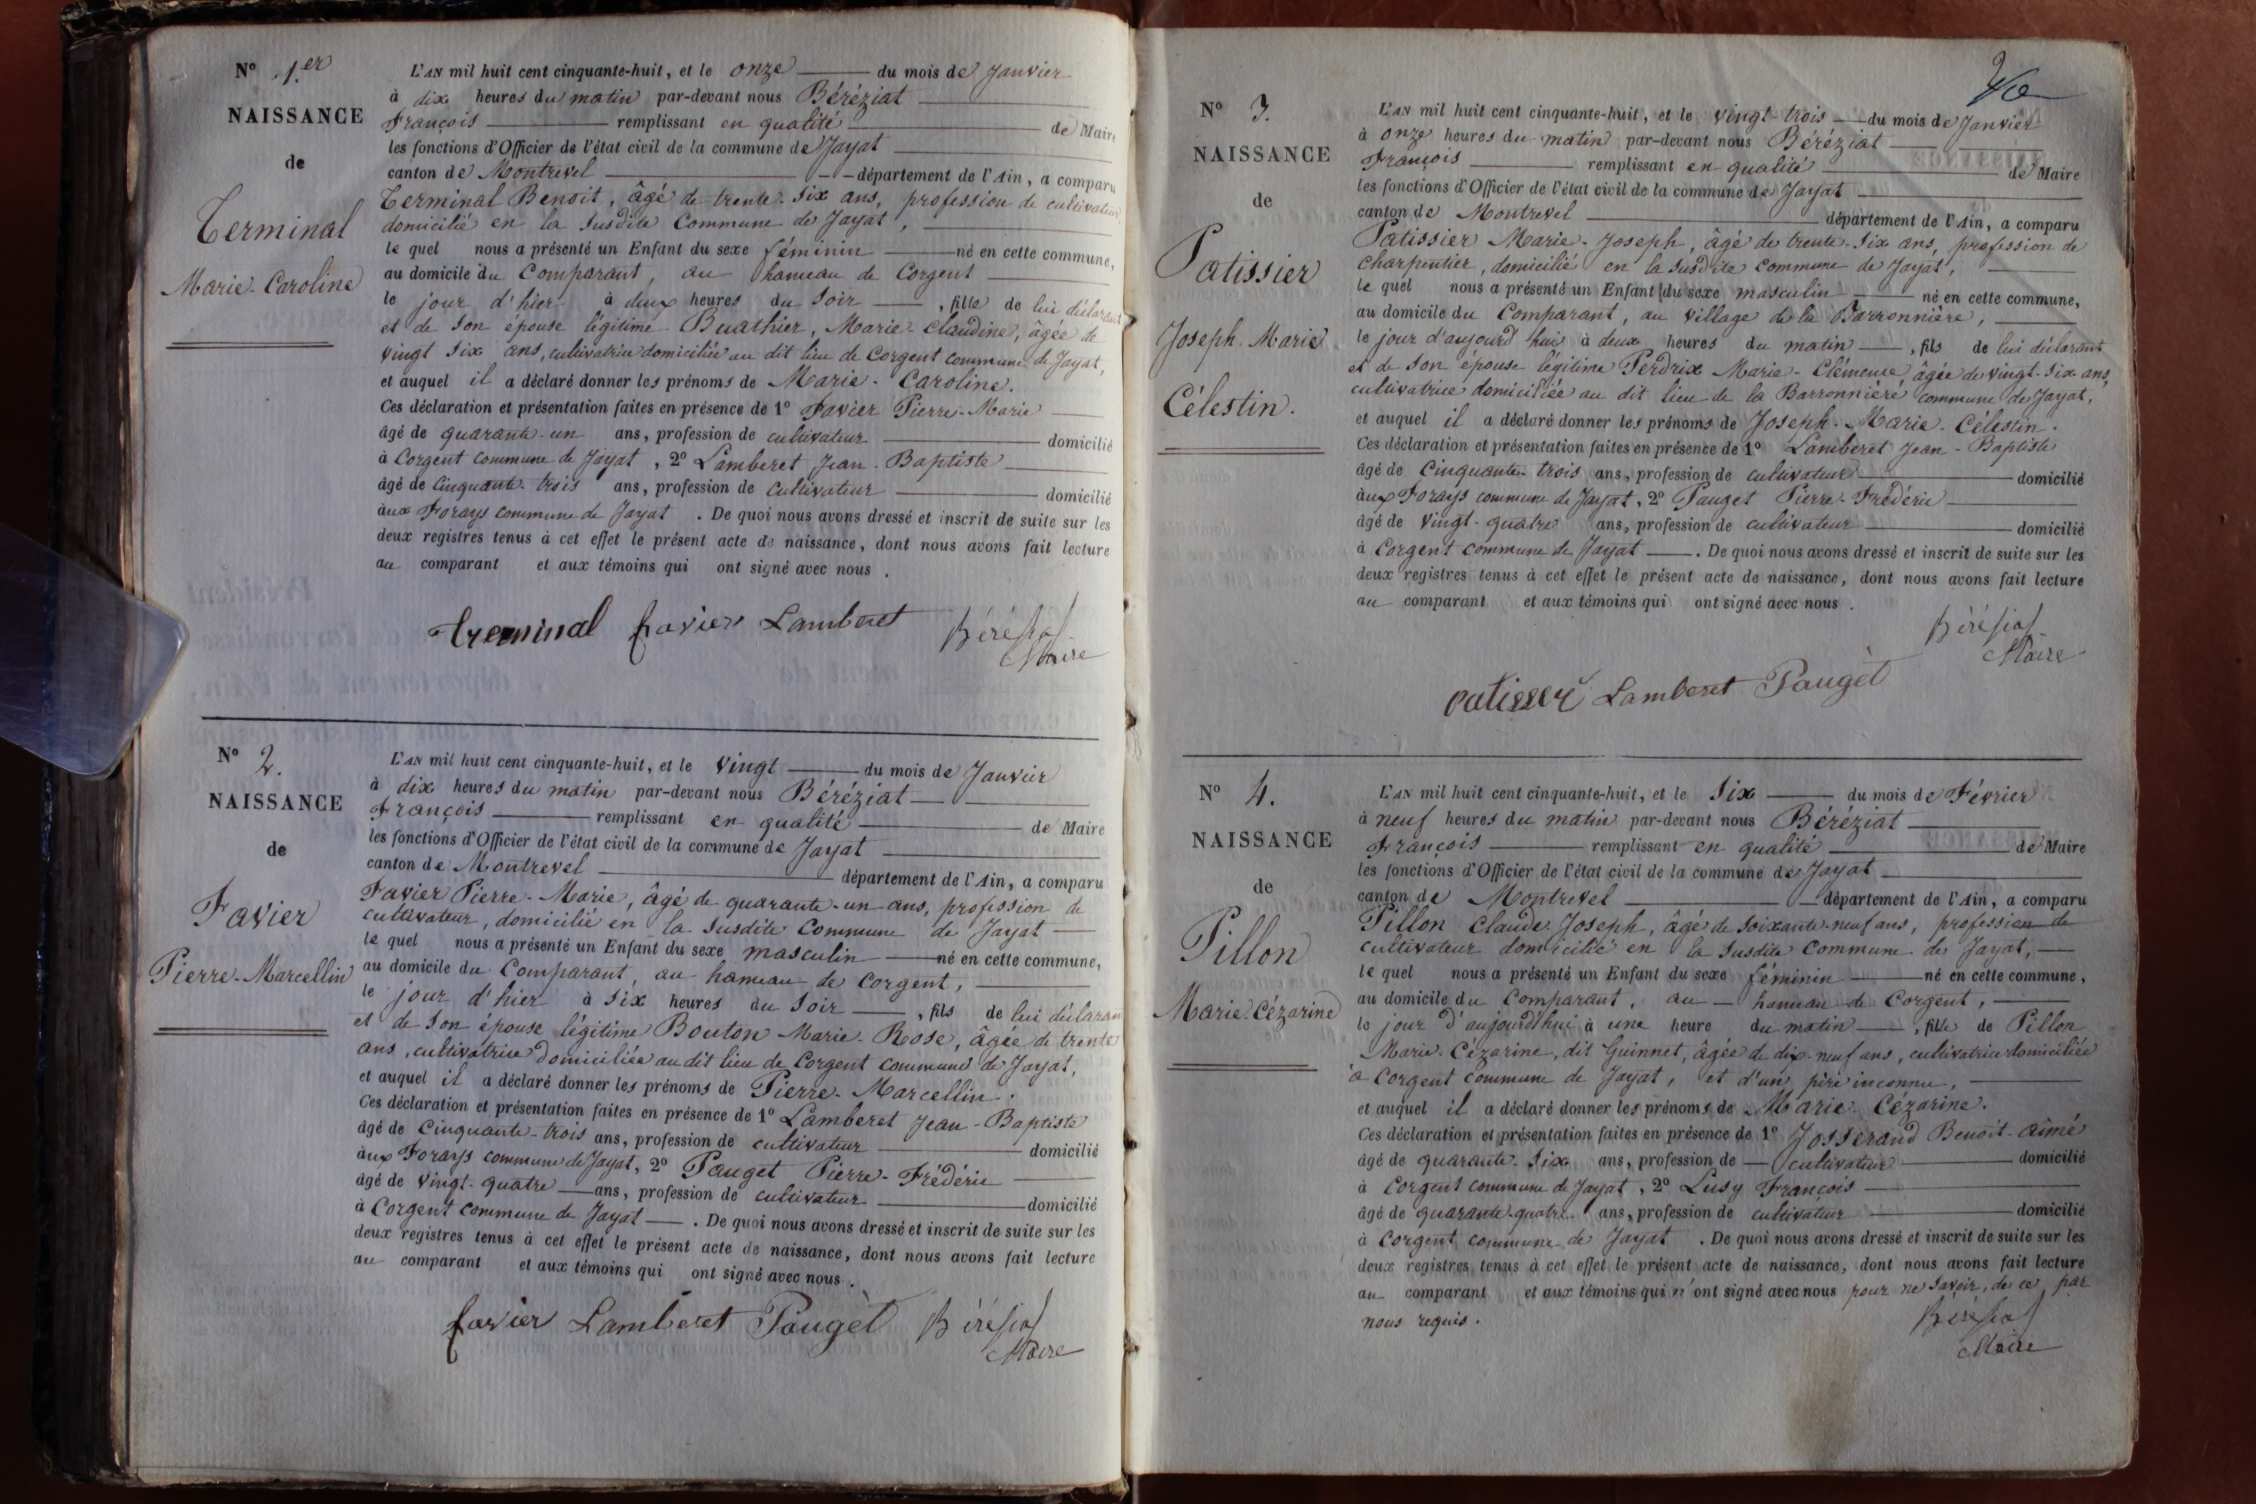 N° 1.er
NAISSANCE
de
Terminal
Marie-Caroline
L'AN mil huit cent cinquante-huit, et le onze du mois de Janvier
à dix heures du matin par-devant nous Béréziat
François remplissant en qualité de Maire
les fonctions d'Officier de l'état civil de la commune de Jayat
canton de Montrevel département de l'Ain, a comparu
Terminal Benoit, âgé de trente-six ans, profession de cultivateur
domicilié en la susdite Commune de Jayat,
le quel nous a présenté un Enfant du sexe féminin né en cette commune,
au domicile du Comparant, au hameau de Corgent
le jour d'hier à deux heures du soir, fille de lui déclarant
et de son épouse légitime Buathier, Marie-Claudine, âgée de
vingt six ans, cultivatrice domiciliée au dit lieu de Corgent commune de Jayat,
et auquel il a déclaré donner les prénoms de Marie-Caroline.
Ces déclaration et présentation faites en présence de 1° Favier Pierre-Marie
âgé de quarante-un ans, profession de cultivateur domicilié
à Corgent commune de Jayat, 2° Lamberet Jean-Baptiste
âgé de cinquante-trois ans, profession de cultivateur domicilié
aux Forays commune de Jayat. De quoi nous avons dressé et inscrit de suite sur les
deux registres tenus à cet effet le présent acte de naissance, dont nous avons fait lecture
au comparant et aux témoins qui ont signé avec nous.
treminal favier Lamberet Béréziat
Maire
N° 2.
NAISSANCE
de
Favier
Pierre-Marcellin
L'AN mil huit cent cinquante-huit, et le vingt du mois de Janvier
à dix heures du matin par-devant nous Béréziat
François remplissant en qualité de Maire
les fonctions d'Officier de l'état civil de la commune de Jayat
canton de Montrevel département de l'Ain, a comparu
Favier Pierre-Marie, âgé de quarante-un ans, profession de
cultivateur, domicilié en la susdite Commune de Jayat
le quel nous a présenté un Enfant du sexe masculin né en cette commune,
au domicile du Comparant, au hameau de Corgent,
le jour d'hier à six heures du soir, fils de lui déclarant
et de son épouse légitime Bouton Marie-Rose, âgée de trente
ans, cultivatrice domiciliée au dit lieu de Corgent commune de Jayat,
et auquel il a déclaré donner les prénoms de Pierre-Marcellin.
Ces déclaration et présentation faites en présence de 1° Lamberet Jean-Baptiste
âgé de cinquante-trois ans, profession de cultivateur domicilié
aux Forays commune de Jayat, 2° Pauget Pierre-Frédéric
âgé de vingt-quatre ans, profession de cultivateur domicilié
à Corgent commune de Jayat. De quoi nous avons dressé et inscrit de suite sur les
deux registres tenus à cet effet le présent acte de naissance, dont nous avons fait lecture
au comparant et aux témoins qui ont signé avec nous.
favier Lamberet Pauget Béréziat
Maire
N° 3.
NAISSANCE
de
Patissier
Joseph-Marie
Célestin.
L'AN mil huit cent cinquante-huit, et le vingt-trois du mois de Janvier
à onze heures du matin par-devant nous Béréziat
François remplissant en qualité de Maire
les fonctions d'Officier de l'état civil de la commune de Jayat
canton de Montrevel département de l'Ain, a comparu
Patissier Marie-Joseph, âgé de trente-six ans, profession de
charpentier, domicilié en la susdite commune de Jayat,
le quel nous a présenté un Enfant du sexe masculin né en cette commune,
au domicile du Comparant, au village de la Barronnière,
le jour d'aujourd'hui à deux heures du matin, fils de lui déclarant
et de son épouse légitime Perdrix Marie-Clémence, âgée de vingt-six ans,
cultivatrice domiciliée au dit lieu de la Barronnière commune de Jayat,
et auquel il a déclaré donner les prénoms de Joseph-Marie-Célestin.
Ces déclaration et présentation faites en présence de 1° Lamberet Jean-Baptiste
âgé de cinquante-trois ans, profession de cultivateur domicilié
aux Forays commune de Jayat, 2° Pauget Pierre-Frédéric
âgé de vingt-quatre ans, profession de cultivateur domicilié
à Corgent commune de Jayat. De quoi nous avons dressé et inscrit de suite sur les
deux registres tenus à cet effet le présent acte de naissance, dont nous avons fait lecture
au comparant et aux témoins qui ont signé avec nous.
Béréziat
Maire
patisser Lamberet Pauget
N° 4.
NAISSANCE
de
Pillon
Marie-Cézarine
L'AN mil huit cent cinquante-huit, et le six du mois de Février
à neuf heures du matin par-devant nous Béréziat
François remplissant en qualité de Maire
les fonctions d'Officier de l'état civil de la commune de Jayat
canton de Montrevel département de l'Ain, a comparu
Pillon Claude-Joseph, âgé de soixante-neuf ans, profession de
cultivateur domicilié en la susdite commune de Jayat,
le quel nous a présenté un Enfant du sexe féminin né en cette commune,
au domicile du Comparant, au hameau de Corgent,
le jour d'aujourd'hui à une heure du matin, fille de Pillon
Marie-Cézarine, dit Guinnet, âgée de dix-neuf ans, cultivatrice domiciliée
à Corgent commune de Jayat, et d'un père inconnu,
et auquel il a déclaré donner les prénoms de Marie-Cézarine.
Ces déclaration et présentation faites en présence de 1° Josserand Benoit-Aimé
âgé de quarante-six ans, profession de cultivateur domicilié
à Corgent commune de Jayat, 2° Lusy François
âgé de quarante-quatre ans, profession de cultivateur domicilié
à Corgent commune de Jayat. De quoi nous avons dressé et inscrit de suite sur les
deux registres tenus à cet effet le présent acte de naissance, dont nous avons fait lecture
au comparant et aux témoins qui n'ont signé avec nous pour ne savoir, de ce par
nous requis.
Béréziat
Maire